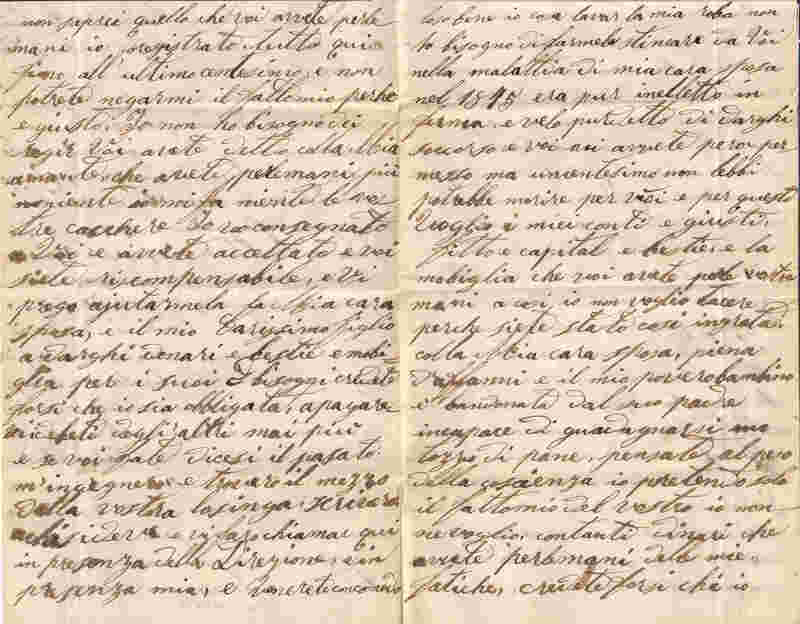 non saprei quello che voi avete perle
mani io, o registrato tutto qui
fino all'ultimo centesimo, e non
potrete negarmi il fatto mio perhe
e giusto. Io non ho bisogno dei
voi avete detto cola Mia
amante che avete, peremani, più
niente le vos
tre cacchere Io vo consegnato
a Voi e avete accettato e voi
siete ricompensabile, e vi
prego ajutarmela la Mia cara
sposa, e il mio Carissimo figlio
a darghi denari e bestie e mobi-
glia per i suoi Bisoggi credete
forsi che io sia obbligata, a pagare
i debiti degli altri mai più
e se voi male dicesi il pasato
m'ingegnero e trovero il mezzo
della vostra losinga, scrivero
e vi faro chiamar qui
in presenza della Direzione, e in
presenza mia, e
bene io co a lavar la mia roba non
ho bisogno di farmela stincare da Voi
nella malattia di mia cara sposa
nel era pur inelletto in
ferma e velo pur detto di darghi
soccorso e voi avete pero per
messo ma uncentesimo non lebbi
potrebbe morire per voi e per questo
Voglio i miei conti e giusti,
fitto e capital e bestie e la
mobiglia che voi avete perle vostre
mani a cosi io non voglio tacere
perche siete stato cosi ingrato,
colla Mia cara sposa, piena
d'affanni e il mio povero bambino
e bandonata dal suo padre
incapace di guadagnarsi un
tozzo di pane, pensate al peso
della coscienza io pretendo solo
il fatto mio del vostro io non
ne voglio, contanti dinari che
avete perlemani dele mie
fatiche, credete forsi che io